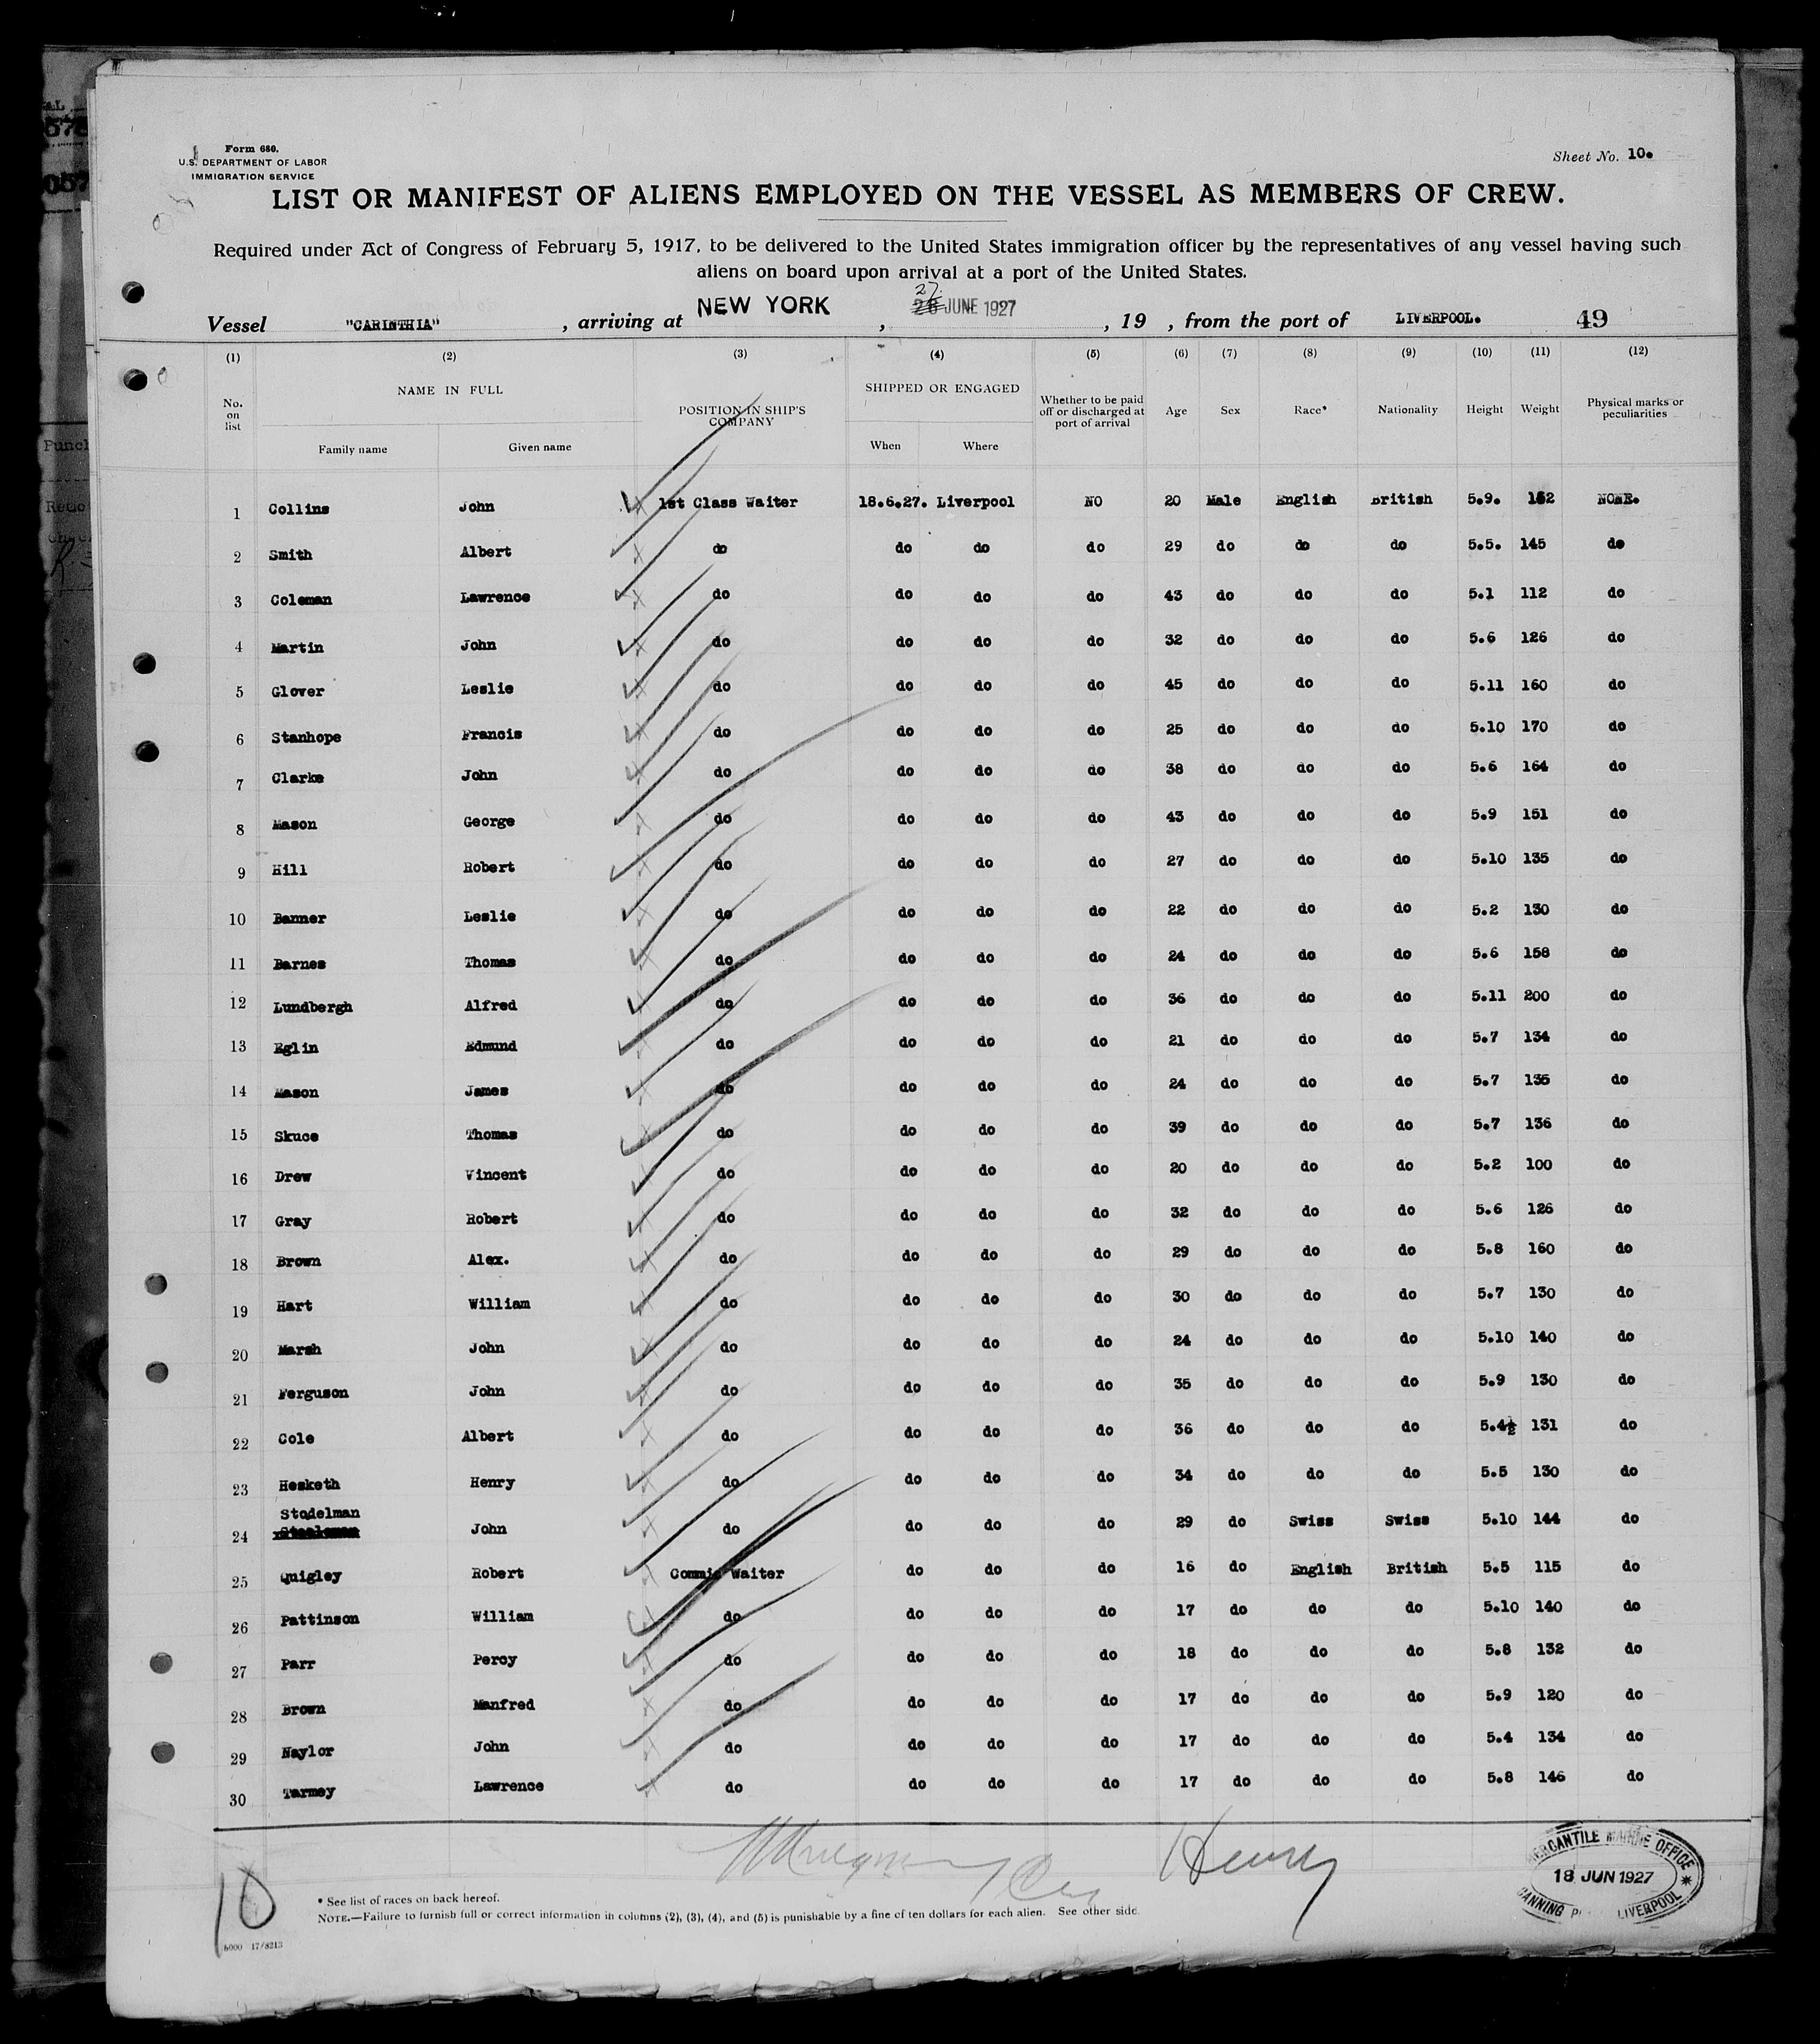 Form 680.
U.S. DEPARTMENT OF LABOR
IMMIGRATION SERVICE
Sheet No. 10.
LIST OR MANIFEST OF ALIENS EMPLOYED ON THE VESSEL AS MEMBERS OF CREW.
Required under Act of Congress of February 5, 1917, to be delivered to the United States immigration officer by the representatives of any vessel having such
aliens on board upon arrival at a port of the United States.
Vessel "CARINTHIA", arriving at NEW YORK, 27 JUNE 1927, 19 , from the port of LIVERPOOL. 49
(1) (2) (3) (4) (5) (6) (7) (8) (9) (10) (11) (12)
No. on list NAME IN FULL Family name Given name POSITION IN SHIP'S COMPANY SHIPPED OR ENGAGED When Where Whether to be paid off or discharged at port of arrival Age Sex Race* Nationality Height Weight Physical marks or peculiarities
1 Collins John 1st Class Waiter 18.6.27. Liverpool NO 20 Male English British 5.9. 152 NONE.
2 Smith Albert do do do do 29 do do do 5.5. 145 do
3 Coleman Lawrence do do do do 43 do do do 5.1 112 do
4 Martin John do do do do 32 do do do 5.6 126 do
5 Glover Leslie do do do do 45 do do do 5.11 160 do
6 Stanhope Francis do do do do 25 do do do 5.10 170 do
7 Clarke John do do do do 38 do do do 5.6 164 do
8 Mason George do do do do 43 do do do 5.9 151 do
9 Hill Robert do do do do 27 do do do 5.10 135 do
10 Banner Leslie do do do do 22 do do do 5.2 130 do
11 Barnes Thomas do do do do 24 do do do 5.6 158 do
12 Lundbergh Alfred do do do do 36 do do do 5.11 200 do
13 Eglin Edmund do do do do 21 do do do 5.7 134 do
14 Mason James do do do do 24 do do do 5.7 135 do
15 Skuce Thomas do do do do 39 do do do 5.7 136 do
16 Drew Vincent do do do do 20 do do do 5.2 100 do
17 Gray Robert do do do do 32 do do do 5.6 126 do
18 Brown Alex. do do do do 29 do do do 5.8 160 do
19 Hart William do do do do 30 do do do 5.7 130 do
20 Marsh John do do do do 24 do do do 5.10 140 do
21 Ferguson John do do do do 35 do do do 5.9 130 do
22 Cole Albert do do do do 36 do do do 5.4½ 131 do
23 Hesketh Henry do do do do 34 do do do 5.5 130 do
24 Stodelman John do do do do 29 do Swiss Swiss 5.10 144 do
25 Quigley Robert Commis Waiter do do do 16 do English British 5.5 115 do
26 Pattinson William do do do do 17 do do do 5.10 140 do
27 Parr Percy do do do do 18 do do do 5.8 132 do
28 Brown Manfred do do do do 17 do do do 5.9 120 do
29 Naylor John do do do do 17 do do do 5.4 134 do
30 Tarmey Lawrence do do do do 17 do do do 5.8 146 do
Henry
MERCANTILE MARINE OFFICE
18 JUN 1927
CANNING LIVERPOOL
10
* See list of races on back hereof.
NOTE.—Failure to furnish full or correct information in columns (2), (3), (4), and (5) is punishable by a fine of ten dollars for each alien. See other side.
6000 17/8213